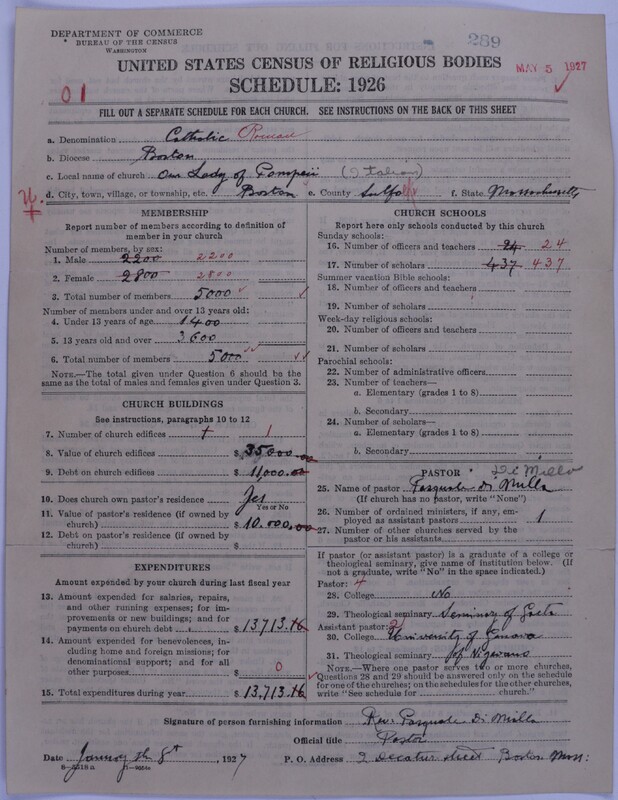 DEPARTMENT OF COMMERCE
BUREAU OF THE CENSUS
WASHINGTON
289
UNITED STATES CENSUS OF RELIGIOUS BODIES
MAY 5 1927
SCHEDULE: 1926
01
FILL OUT A SEPARATE SCHEDULE FOR EACH CHURCH. SEE INSTRUCTIONS ON THE BACK OF THIS SHEET
a. Denomination Catholic Roman
b. Diocese Boston
c. Local name of church Our Lady of Pompeii (Italian)
d. City, town, village, or township, etc. Boston e. County Suffolk f. State Massachusetts
MEMBERSHIP
Report number of members according to definition of member in your church
Number of members, by sex:
1. Male 2200 2200
2. Female 2800 2800
3. Total number of members 5000
Number of members under and over 13 years old:
4. Under 13 years of age 1400
5. 13 years old and over 3600
6. Total number of members 5000
NOTE.—The total given under Question 6 should be the same as the total of males and females given under Question 3.
CHURCH BUILDINGS
See instructions, paragraphs 10 to 12
7. Number of church edifices 1
8. Value of church edifices $ 35000.00
9. Debt on church edifices $ 11,000.00
10. Does church own pastor's residence Yes
Yes or No
11. Value of pastor's residence (if owned by church) $ 10.000,00
12. Debt on pastor's residence (if owned by church) $
EXPENDITURES
Amount expended by your church during last fiscal year
13. Amount expended for salaries, repairs, and other running expenses; for improvements or new buildings; and for payments on church debt $ 13,713.16
14. Amount expended for benevolences, including home and foreign missions; for denominational support; and for all other purposes $ 0
15. Total expenditures during year $ 13,713.16
CHURCH SCHOOLS
Report here only schools conducted by this church
Sunday schools:
16. Number of officers and teachers 24 24
17. Number of scholars 437 437
Summer vacation Bible schools:
18. Number of officers and teachers
19. Number of scholars
Week-day religious schools:
20. Number of officers and teachers
21. Number of scholars
Parochial schools:
22. Number of administrative officers
23. Number of teachers—
a. Elementary (grades 1 to 8)
b. Secondary
24. Number of scholars—
a. Elementary (grades 1 to 8)
b. Secondary
PASTOR Di Milla
25. Name of pastor Pasquale Di Milla
(If church has no pastor, write "None")
26. Number of ordained ministers, if any, employed as assistant pastors 1
27. Number of other churches served by the pastor or his assistants
If pastor (or assistant pastor) is a graduate of a college or theological seminary, give name of institution below. (If not a graduate, write "No" in the space indicated.)
Pastor:
28. College No
29. Theological seminary Seminary of Gaeta
Assistant pastor:
30. College University of Genova
31. Theological seminary of Vigevano
NOTE.—Where one pastor serves two or more churches, Questions 28 and 29 should be answered only on the schedule for one of the churches; on the schedules for the other churches, write "See schedule for church."
Signature of person furnishing information Rev. Pasquale Di Milla
Official title Pastor
Date January the 8th, 1927 P. O. Address 2 Decatur street Boston Mass: